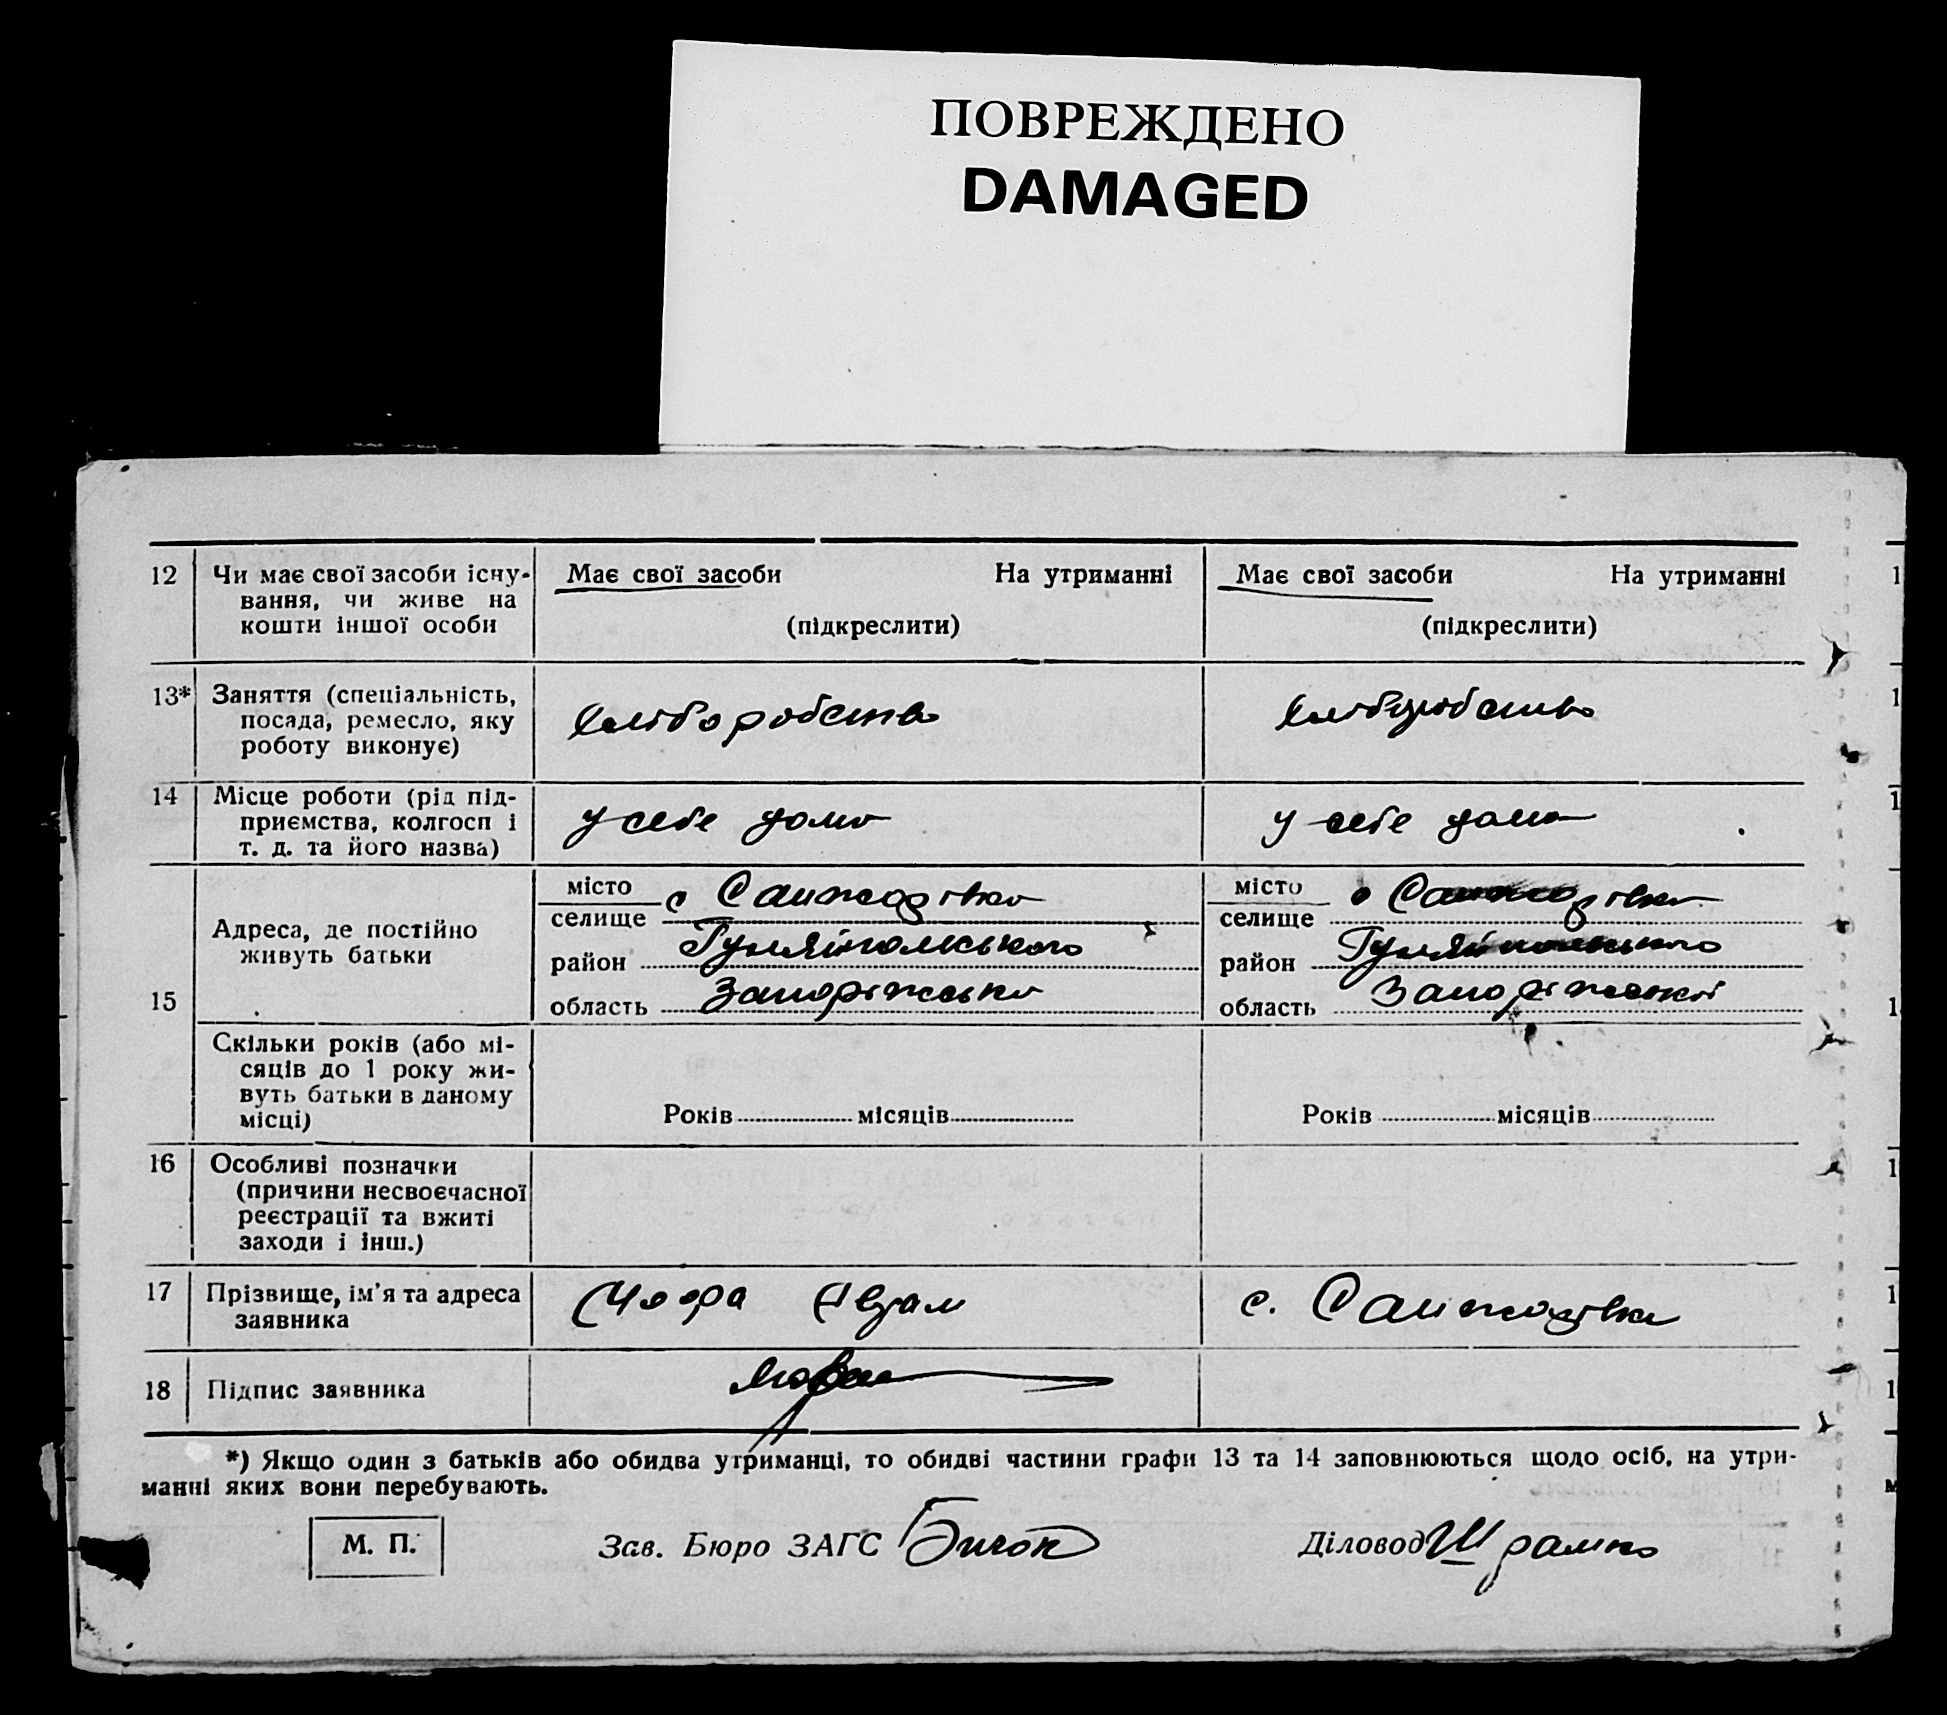 ПОВРЕЖДЕНО
DAMAGED
12 Чи має свої засоби існу-
вання, чи живе на
кошти іншої особи
Має свої засоби На утриманні
(підкреслити)
Має свої засоби На утриманні
(підкреслити)
13* Заняття (спеціальність,
посада, ремесло, яку
роботу виконує)
хліборобство
хліборобство
14 Місце роботи (рід під-
приємства, колгосп і
т. д. та його назва)
у себе дома
у себе дома
15 Адреса, де постійно
живуть батьки
місто с Санжарівка
селище
район Гуляйпольського
область Запоріжська
місто с Санжарівка
селище
район Гуляйпольського
область Запоріжської
Скільки років (або мі-
сяців до 1 року жи-
вуть батьки в даному
місці)
Років місяців
Років місяців
16 Особливі позначки
(причини несвоєчасної
реєстрації та вжиті
заходи і інш.)
17 Прізвище, ім'я та адреса
заявника
с.
18 Підпис заявника
*) Якщо один з батьків або обидва утриманці, то обидві частини графи 13 та 14 заповнюються щодо осіб, на утри-
манні яких вони перебувають.
М. П.
Зав. Бюро ЗАГС
Діловод Шрамко